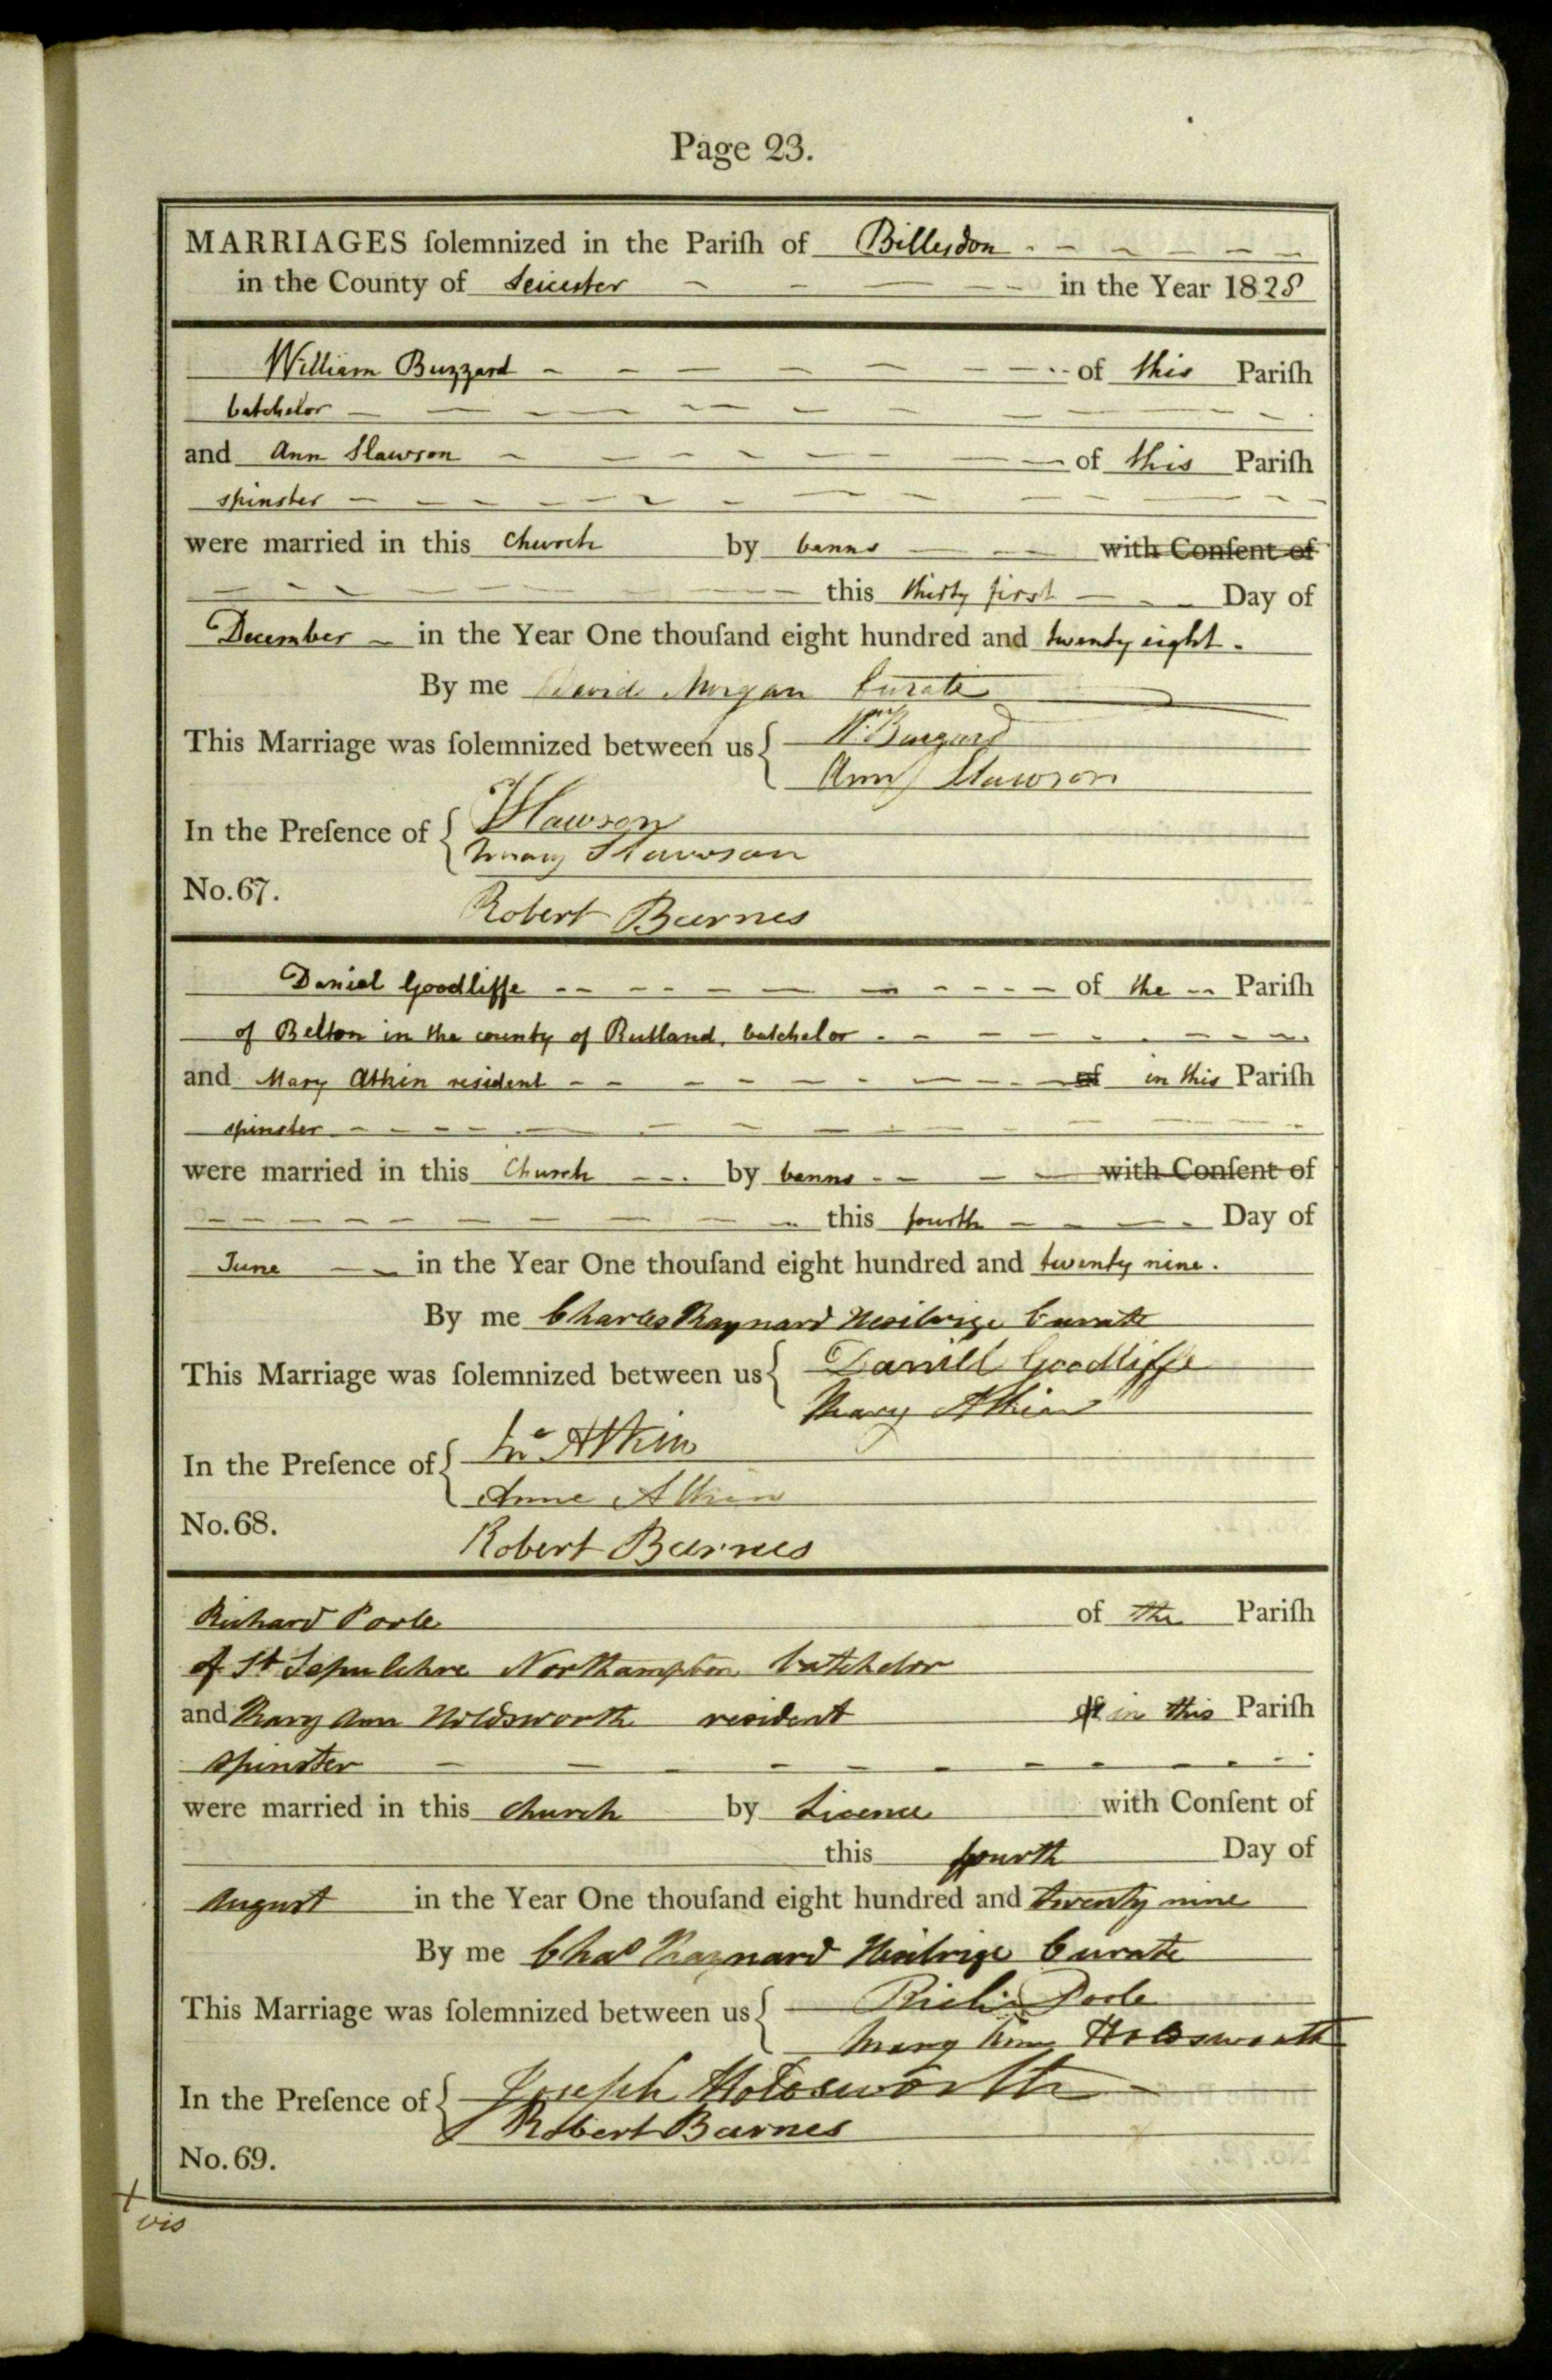 Page 23.
MARRIAGES ſolemnized in the Pariſh of Billesdon
in the County of Leicester in the Year 1828
William Buzzard of this Pariſh
batchelor
and Ann Slawson of this Pariſh
spinster
were married in this Church by banns with Conſent of
this thirty first Day of
December in the Year One thouſand eight hundred and twenty eight.
By me David Morgan Curate
This Marriage was ſolemnized between us { W. Buzzard
Ann Slawson
In the Preſence of { Slawson
Mary Slawson
No. 67.
Robert Barnes
Daniel Goodliffe of the Pariſh
of Belton in the county of Rutland, batchelor
and Mary Atkin resident of in this Pariſh
spinster
were married in this Church by banns with Conſent of
this fourth Day of
June in the Year One thouſand eight hundred and twenty nine.
By me Charles Maynard Heselrige Curate
This Marriage was ſolemnized between us { Daniel Goodliffe
Mary Atkin
In the Preſence of { Atkin
Anne Atkin
No. 68.
Robert Barnes
Richard Poole of the Pariſh
of St Sepulchre Northampton batchelor
and Mary Ann Holdsworth resident of in this Pariſh
spinster
were married in this church by Licence with Conſent of
this fourth Day of
August in the Year One thouſand eight hundred and twenty nine
By me Chas Maynard Heselrige Curate
This Marriage was ſolemnized between us { Richd Poole
Mary Ann Holdsworth
In the Preſence of { Joseph Holdsworth
Robert Barnes
No. 69.